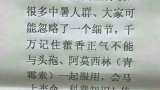 很多中暑人群、大家可
能忽略了一个细节，千
万记住藿香正气不能
与头孢、阿莫西林（青
霉素）一起服用，会马